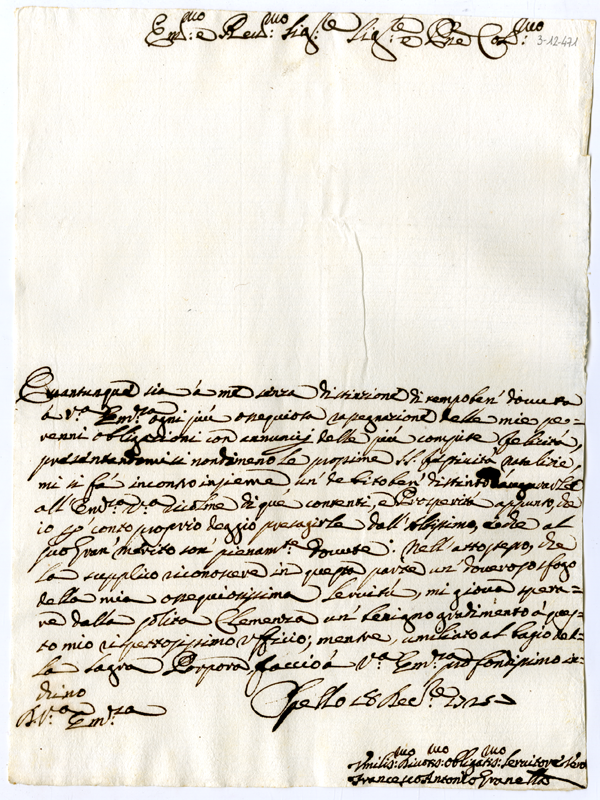 Em:mo e Rev:mo Sig:re Sig:re e P̃ne Col:mo
3-12-471
Quantunque sia à me senza distinzione di tempo ben' dovuta
à V:a Em:za ogni più ossequiosa rasegnazione delle mie pe=
renni obligazioni con annuncij delle più compite felicità,
presentandomisi nondimeno le prossime SS. festività natalizie,
mi si fà incontro insieme un' debito ben' distinto
all' Em:za V:a ricolme di què contenti, e Prosperità appunto, che
io p̃ conto proprio deggio presagirle dall' Altissimo, e che al
suo gran' merito son' pienam:te dovute: Nell' atto stesso, che
la supplico riconoscere in questa parte un' doveroso sfogo
della mia ossequiosissima servitù, mi giova spera=
re dalla solita Clemenza un' benigno gradimento à ques=
to mio rispettosissimo ufficio; mentre, umiliato al bagio del=
la sagra Porpora, faccio à V:a Em:za profondissimo in=
chino
D. V:a Em:za
Spello 18 Dec:re 1725
Umilis:mo Divotis:mo obligatis:mo Servitore Vero
Francesco Antonio